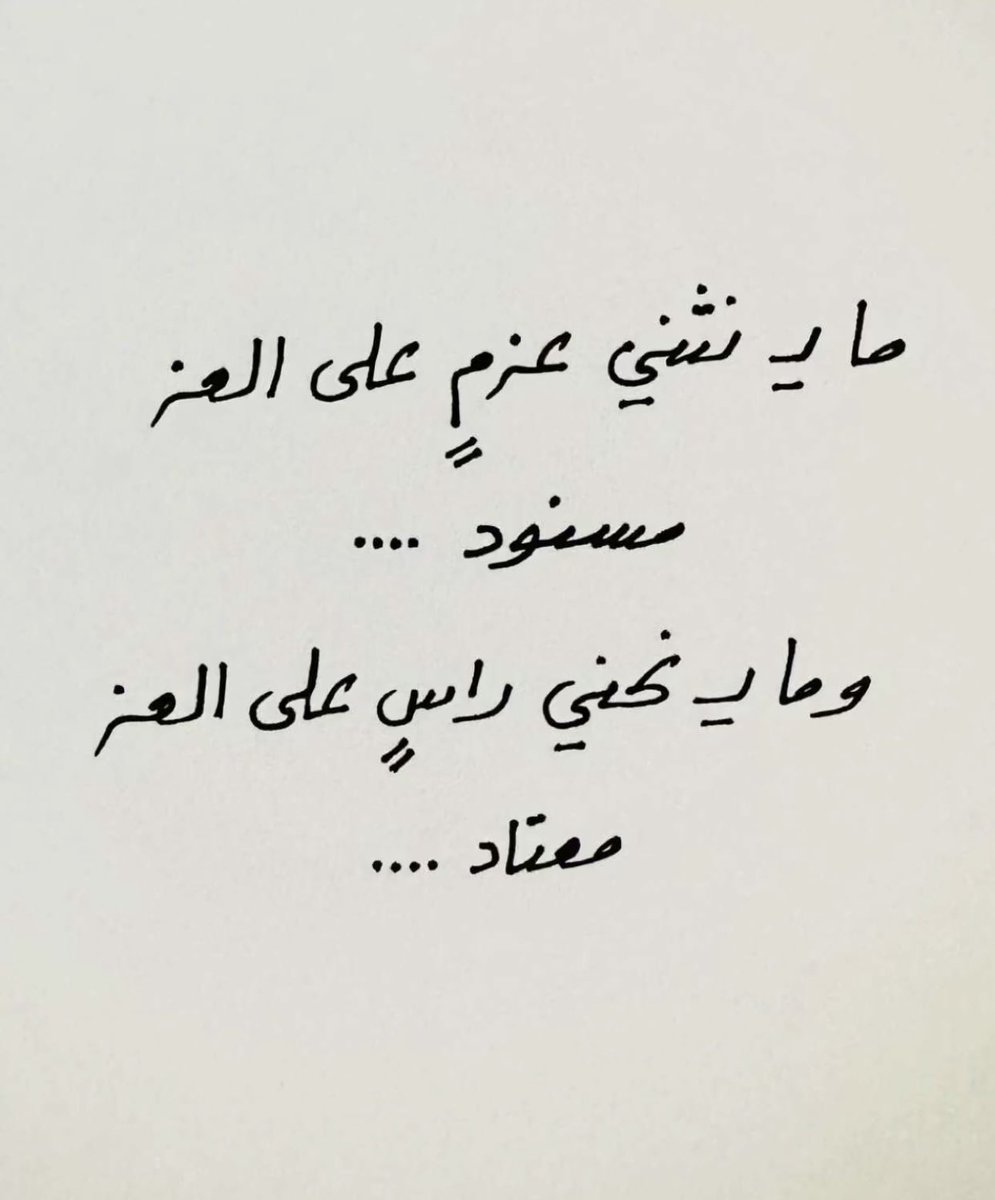 ما ينثني عزمٍ على العز
مسنود ....
وما ينحني راسٍ على العز
معتاد ....